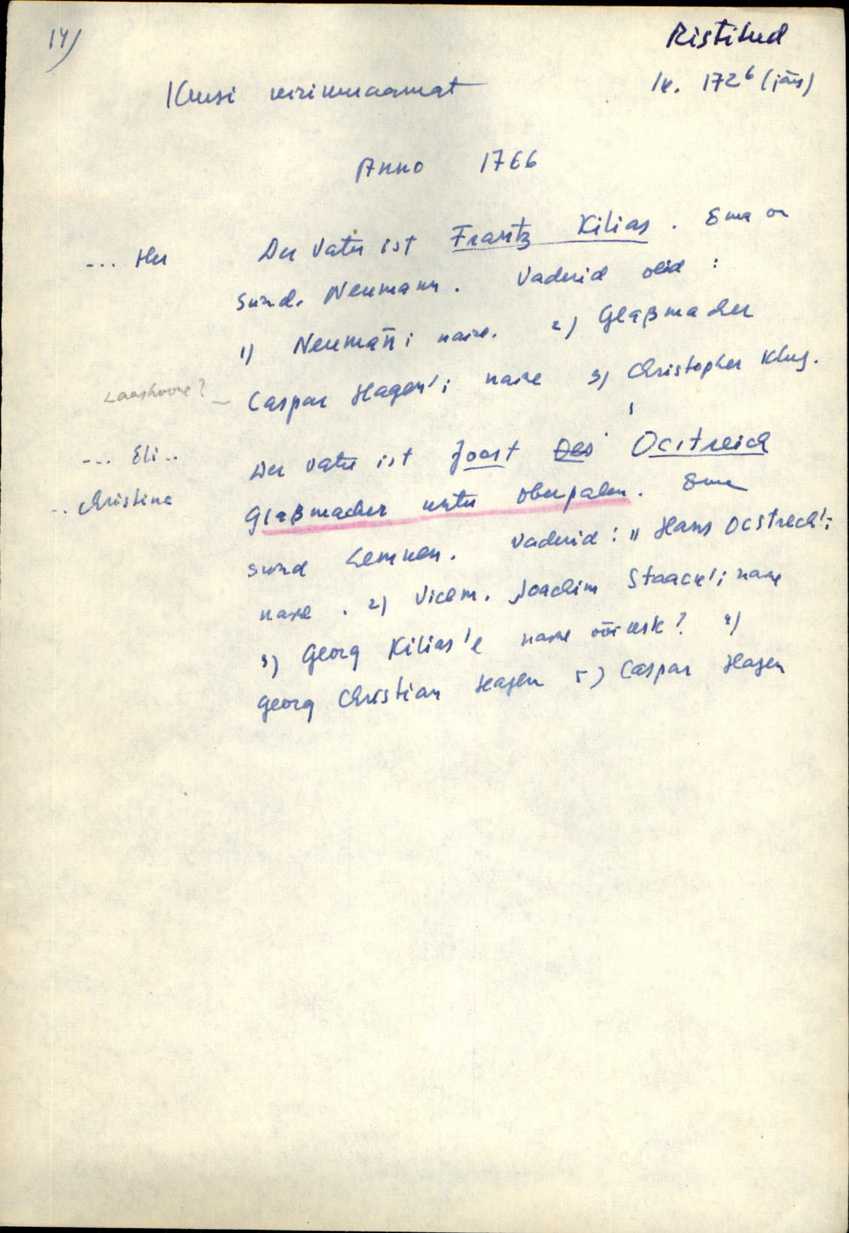 14)
Ristitud
lk. 1726 (järg)
Kuusi
Anno 1766
... Her Der Vater ist Frantz Kilias. Ema on
sünd. Neumann. Vaderid olid:
1) Neumañi naine. 2) Glaßmacher
Laashoone? Caspar Hagen'i naine 3) Christopher Klug.
... Eli.. Der Vater ist Joost Oes Oestreich
.. Christina Glaßmacher unter oberpalen. Ema
sünd Lemnen. Vaderid: 1) Hans Oestrech'i
naine. 2) Vicem. Joachim Staack'i naine
3) Georg Kilias'e naine või lesk? 4)
Georg Christian Hagen 5) Caspar Hagen